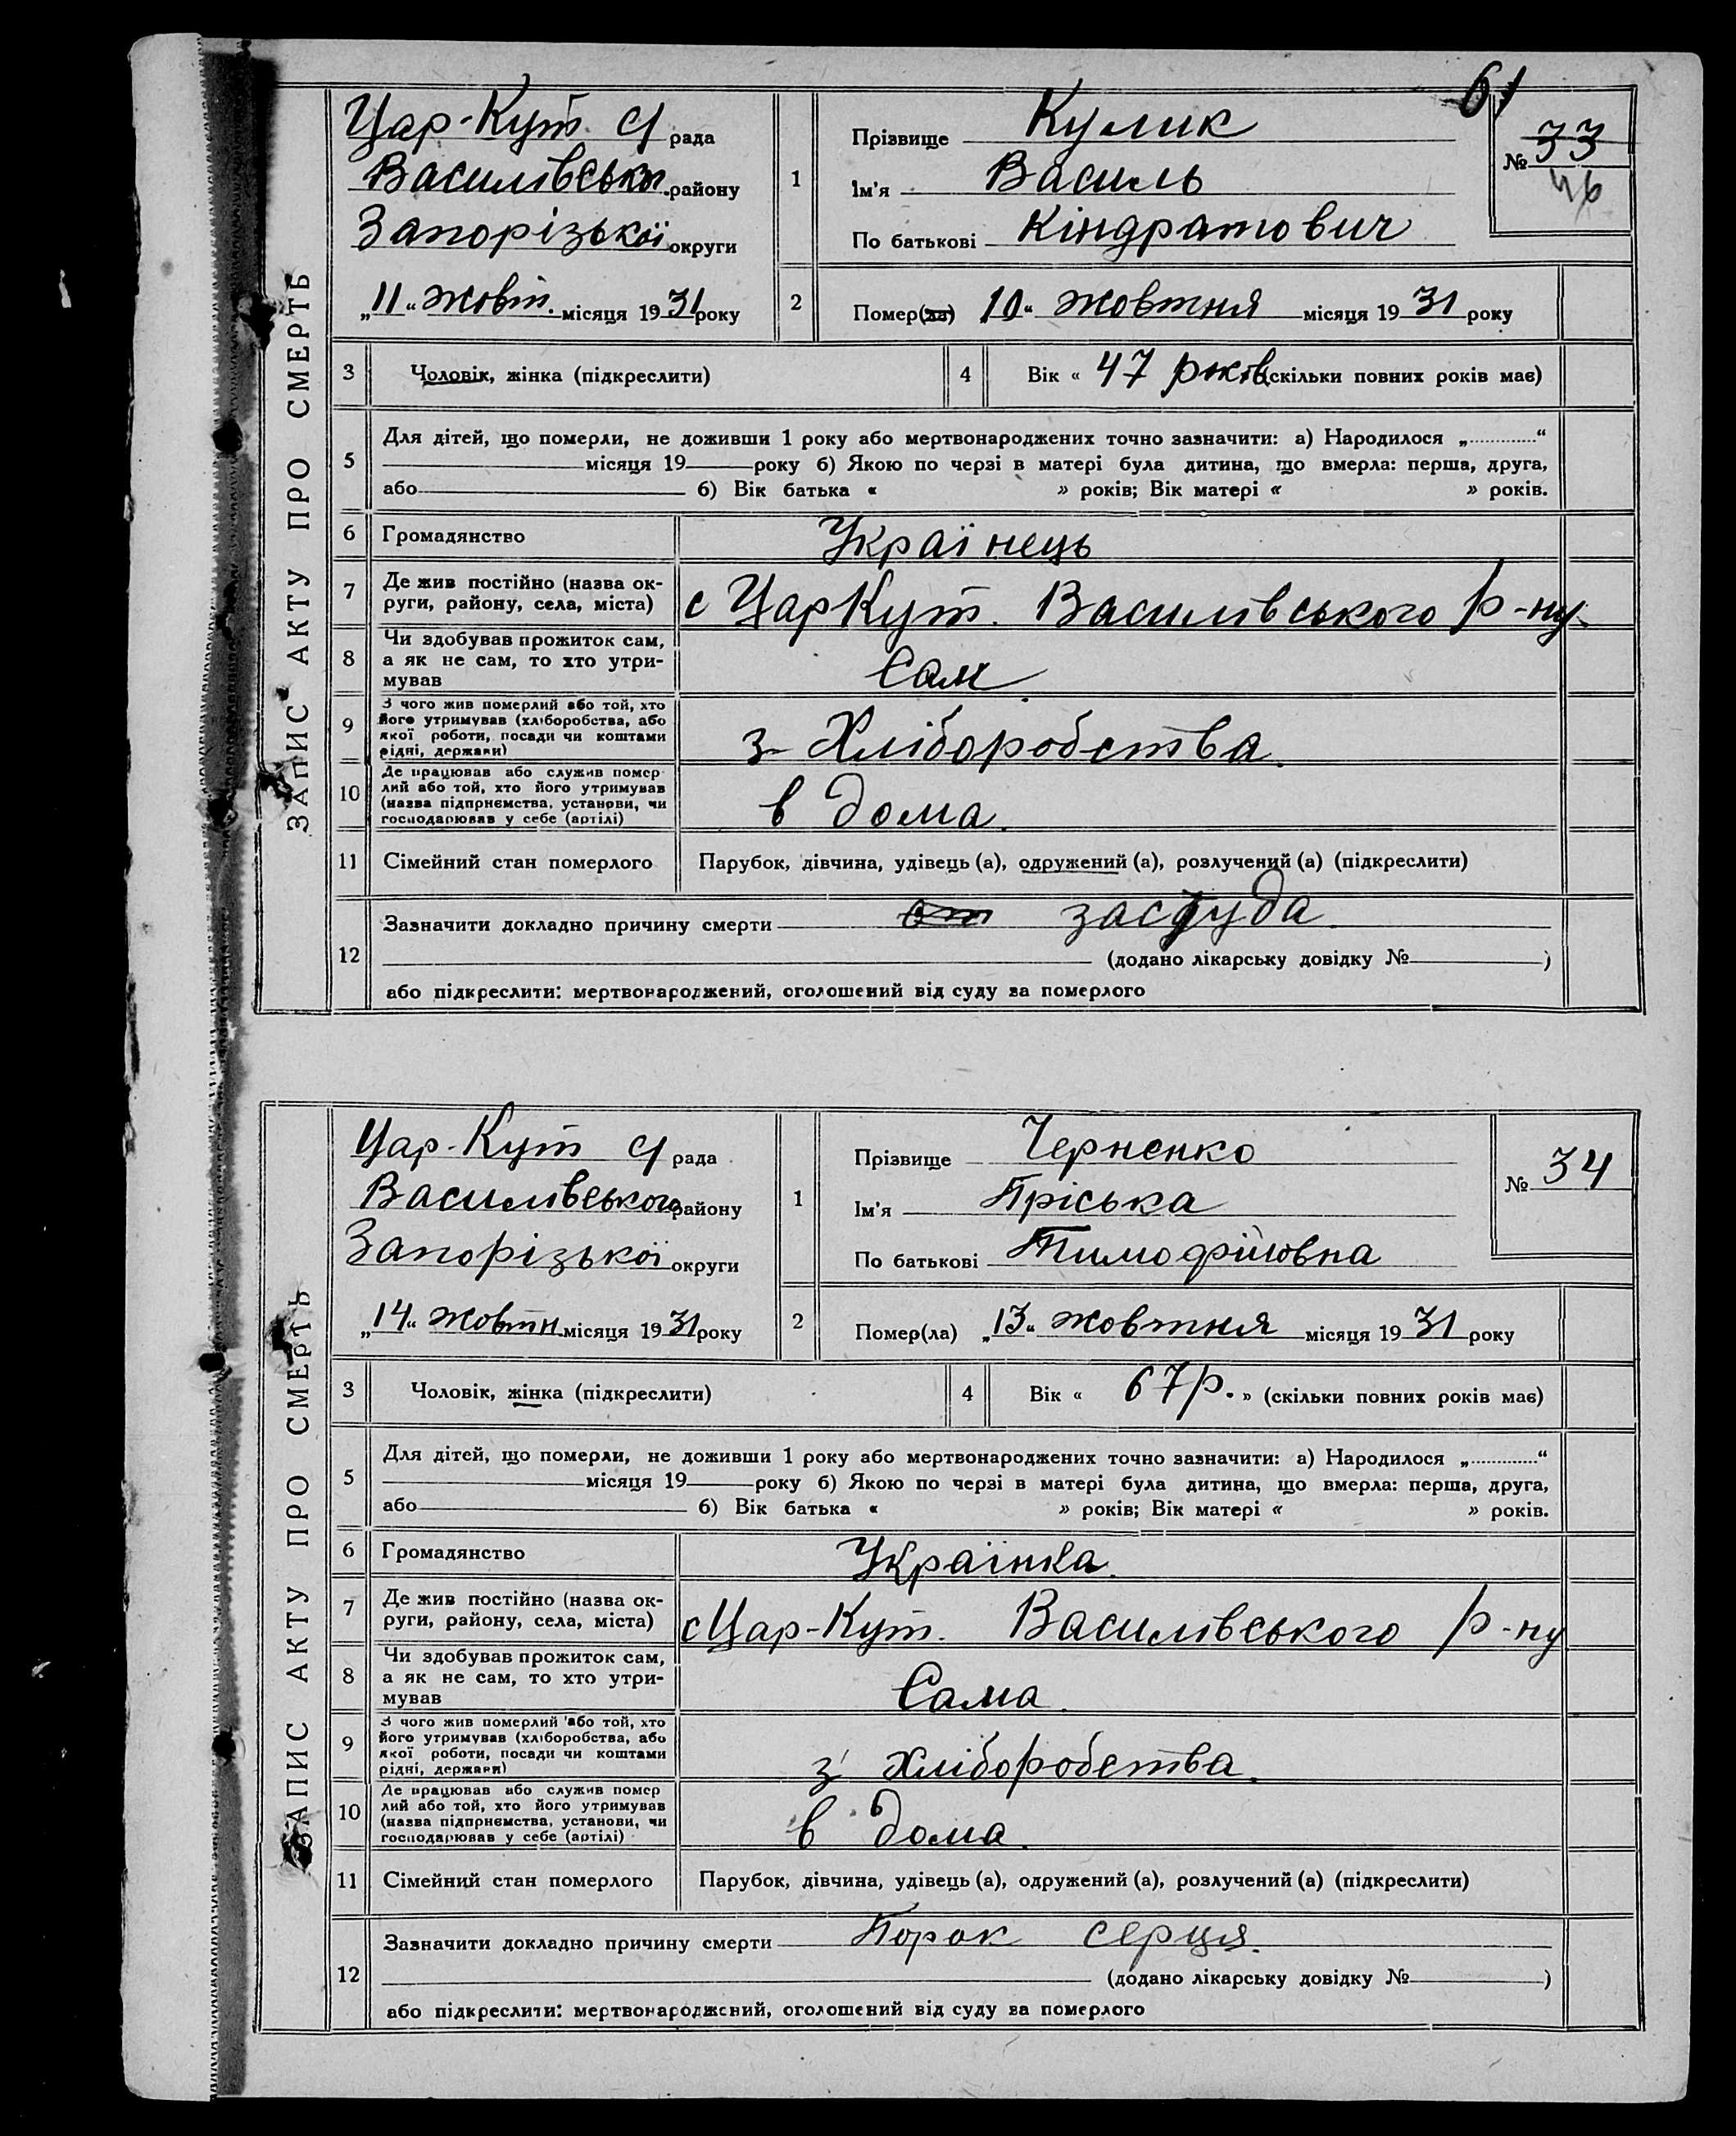 61
ЗАПИС АКТУ ПРО СМЕРТЬ
Цар-Кут с/рада
Василівськ району
Запорізької округи
„11“ жовт. місяця 1931 року
1
Прізвище Кулик
Ім'я Василь
По батькові Кіндратович
№ 33
46
2
Помер(ла) 10“ жовтня місяця 1931 року
3 Чоловік, жінка (підкреслити)
4 Вік « 47 років (скільки повних років має)
5 Для дітей, що померли, не доживши 1 року або мертвонароджених точно зазначити: а) Народилося „............“
місяця 19 року б) Якою по черзі в матері була дитина, що вмерла: перша, друга,
або б) Вік батька « » років; Вік матері « » років.
6 Громадянство Українець
7 Де жив постійно (назва ок-
руги, району, села, міста) с ЦарКут. Василівського р-ну.
8 Чи здобував прожиток сам,
а як не сам, то хто утри-
мував Сам
9 З чого жив померлий або той, хто
його утримував (хліборобства, або
якої роботи, посади чи коштами
рідні, держави) з Хліборобства.
10 Де працював або служив помер
лий або той, хто його утримував
(назва підприємства, установи, чи
господарював у себе (артілі) в дома.
11 Сімейний стан померлого Парубок, дівчина, удівець (а), одружений (а), розлучений (а) (підкреслити)
12 Зазначити докладно причину смерти от застуда.
(додано лікарську довідку № )
або підкреслити: мертвонароджений, оголошений від суду за померлого
ЗАПИС АКТУ ПРО СМЕРТЬ
Цар-Кут с/рада
Василівського району
Запорізької округи
„14“ жовтн місяця 1931 року
1
Прізвище Черненко
Ім'я Пріська
По батькові Тимофійовна
№ 34
2
Помер(ла) „13“ жовтня місяця 1931 року
3 Чоловік, жінка (підкреслити)
4 Вік « 67 р. » (скільки повних років має)
5 Для дітей, що померли, не доживши 1 року або мертвонароджених точно зазначити: а) Народилося „............“
місяця 19 року б) Якою по черзі в матері була дитина, що вмерла: перша, друга,
або б) Вік батька « » років; Вік матері « » років.
6 Громадянство Українка.
7 Де жив постійно (назва ок-
руги, району, села, міста) с Цар-Кут. Василівського р-ну
8 Чи здобував прожиток сам,
а як не сам, то хто утри-
мував Сама.
9 З чого жив померлий або той, хто
його утримував (хліборобства, або
якої роботи, посади чи коштами
рідні, держави) з хліборобства.
10 Де працював або служив помер
лий або той, хто його утримував
(назва підприємства, установи, чи
господарював у себе (артілі) в дома.
11 Сімейний стан померлого Парубок, дівчина, удівець (а), одружений (а), розлучений (а) (підкреслити)
12 Зазначити докладно причину смерти Порок серця.
(додано лікарську довідку № )
або підкреслити: мертвонароджений, оголошений від суду за померлого